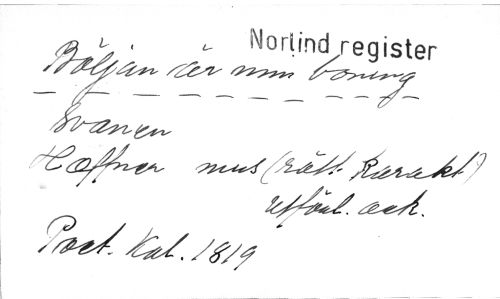 Norlind register
Böljan är min boning
Svanen
Hæffner mus (rätt. Karakt)
utförl. ack.
Poet. Kal. 1819